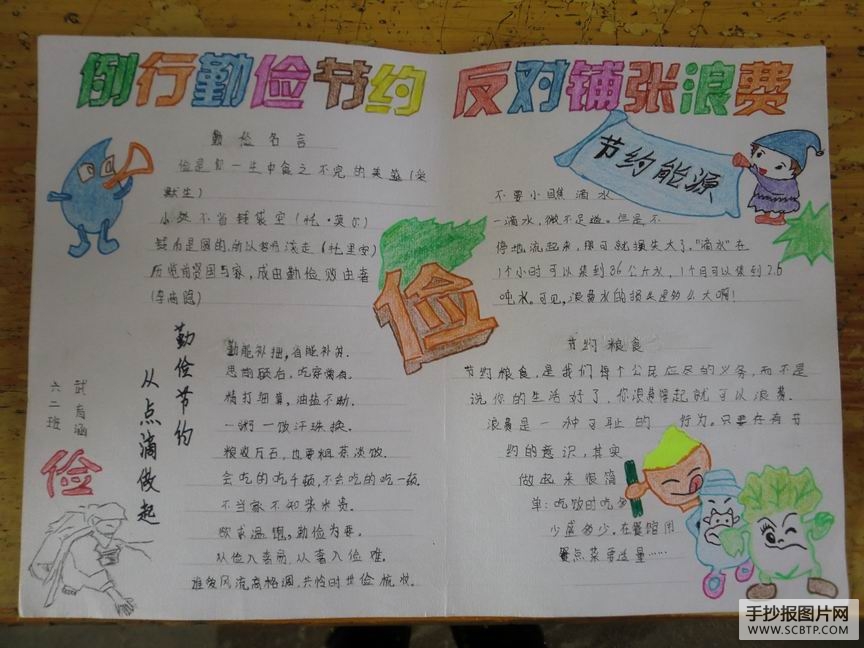 例行勤俭节约 反对铺张浪费
勤俭名言
俭是你一生中食之不完的美筵(爱
默生)
小处不省钱袋空(托·英尔)
钱币是圆的,所以容易滚走(杜里安)
历览前贤国与家,成由勤俭败由奢
(李商隐)
勤俭节约
从点滴做起
六二班
武
涵
俭
勤能补拙,省能补贫.
思前顾后,吃穿常有.
精打细算,油盐不断.
一粥一饭汗珠换.
粮收万石,也要粗茶淡饭.
会吃的吃千顿,不会吃的吃一顿.
不当家不知柴米贵.
欲求温饱,勤俭为要.
从俭入奢易,从奢入俭难.
谁爱风流高格调,共怜时世俭梳妆.
俭
节约能源
不要小瞧滴水
一滴水,微不足道。但是不
停地流起来,那可就损失大了."滴水"在
1个小时可以集到3.6公斤水,1个月可以集到2.6
吨水。可见,浪费水的损失是多么大啊!
节约粮食
节约粮食,是我们每个公民应尽的义务,而不是
说你的生活好了,你浪费得起就可以浪费.
浪费是一种可耻的 行为。只要存有节
约的意识,其实
做起来很简
单:吃饭时吃多
少盛多少.在餐馆用
餐点菜要适量……
手抄报图片网
WWW.SCBTP.COM